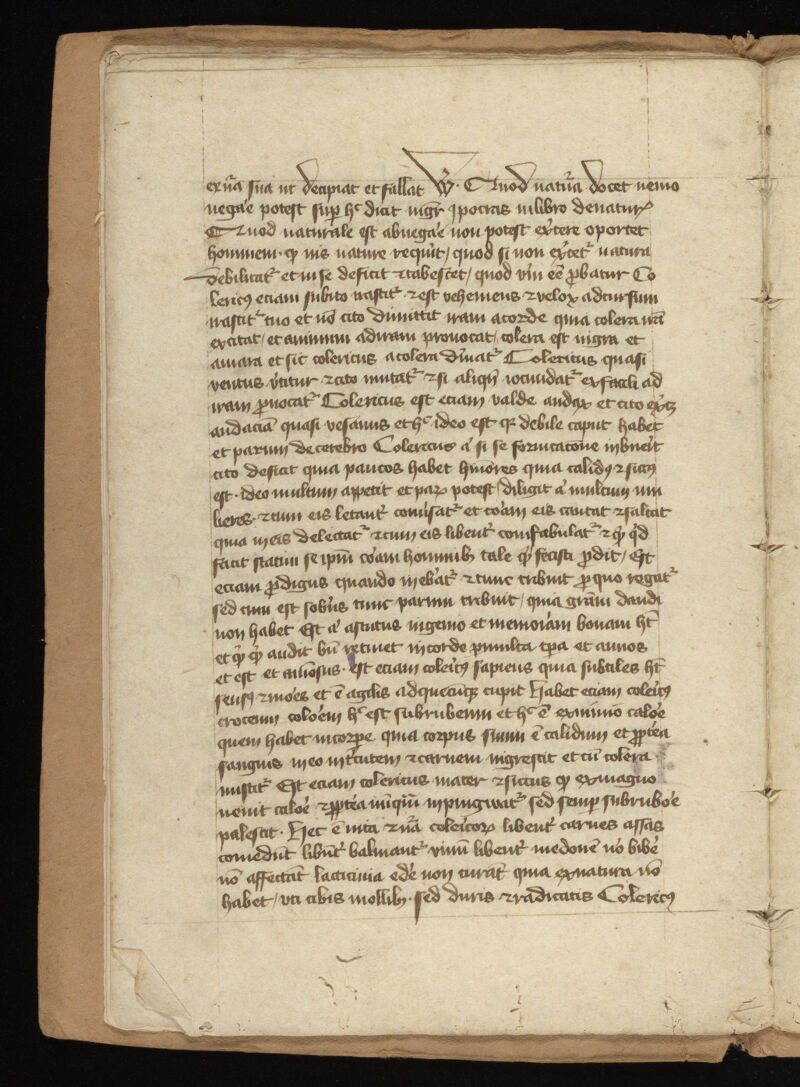 ex nᵃa sua ut decipiat et fallat Vꝰ. Quod natura docet nemo
negaꝛe potest suꝑ hᶜ dicit mgr ypocras in libro de naturꝭ
Quod naturale est abnegaꝛe non potest exꝰcere oportet
hominem. qꝫ ius nature requirit / quod si non exꝰcetꝰ natura
debilitatꝰ et in se deficit ⁊ tabescet / quod vinꝰ eē ꝓbatur Co
lericꝰ eciam subito irascitꝰ ⁊ est vehemens ⁊ velox ad cursum
irascitꝰ cito et nō cito dimittit iram a corde quia colera irā
excitat / et animum ad iram prouocat / colera est nigra et
amara et sic colericus a colera dīnatꝰ Colericus quasi
ventus vꝰtitur ⁊ cito mutatꝰ ⁊ si aliqñ iocundatꝰ ex facili ad
iram ꝓuocatꝰ Colericus est eciam valde audax et cito exꝰcꝫ
audaciā quasi vesanus et hᶜ ideo est qꝛ debile caput habet
et parum de cerebro Colericus si se fornicacione
cito deficit quia paucos habet hūores quia calidꝰ ⁊ siccꝰ
est. ideo multum appetit et paꝝ potest / diligit multum mu
lieres. ⁊ cum eis letantꝰ conuꝰsatꝰ et coꝛam eis cantat ⁊ saltat
quia in eis delectatꝰ ⁊ cum eis libentꝰ confabulatꝰ ⁊ qꝫ qd
facit statim se ipm̄ coꝛam hominibꝫ tale fecisti ꝓdit / Est
eciam ꝓdigus quando inebꝛiatꝰ ⁊ tunc tribuit ꝓ quo rogatꝰ
sed cum est sobꝛius tunc parum tribuit / quia gram dandi
non habet Est astutus ingenio et memoꝛiam bonam hꝫ
et audit bn̄ retinet in corde ꝑ multa tꝑa et annos
et est et aiōsus. Est eciam colericꝰ sapiens quia subtiles hꝫ
sensꝰ ⁊ moꝛes et ē agilis ad quecūqꝫ cupit Habet eciam colericꝰ
croceum coloꝛem hᶜ est subrubeum et hᶜ ē ex nimio caloꝛe
quem habet in corpoꝛe quia corpus suum ē calidum et ꝓpteꝛea
sanguis in eo in cutem ⁊ carnem ingrescit et cū colera
miscitꝰ Est eciam colericus macer ⁊ siccus qꝫ ex magno
uenit caloꝛe ⁊ ꝓpteꝛea nūqm̄ inpingwatꝰ sed semꝑ suo ruboꝛe
palescit. Hec ē vita ⁊ nᵃa colericoꝝ libentꝰ carnes assas
comedunt libentꝰ balneantꝰ vinum libentꝰ medonē nō bibeꝛe
nō affectant lacticinia edeꝛe non curāt quia ex natura nō
habet / vti cibis mollibꝫ. sed duris ⁊ radicatis Colericꝰ